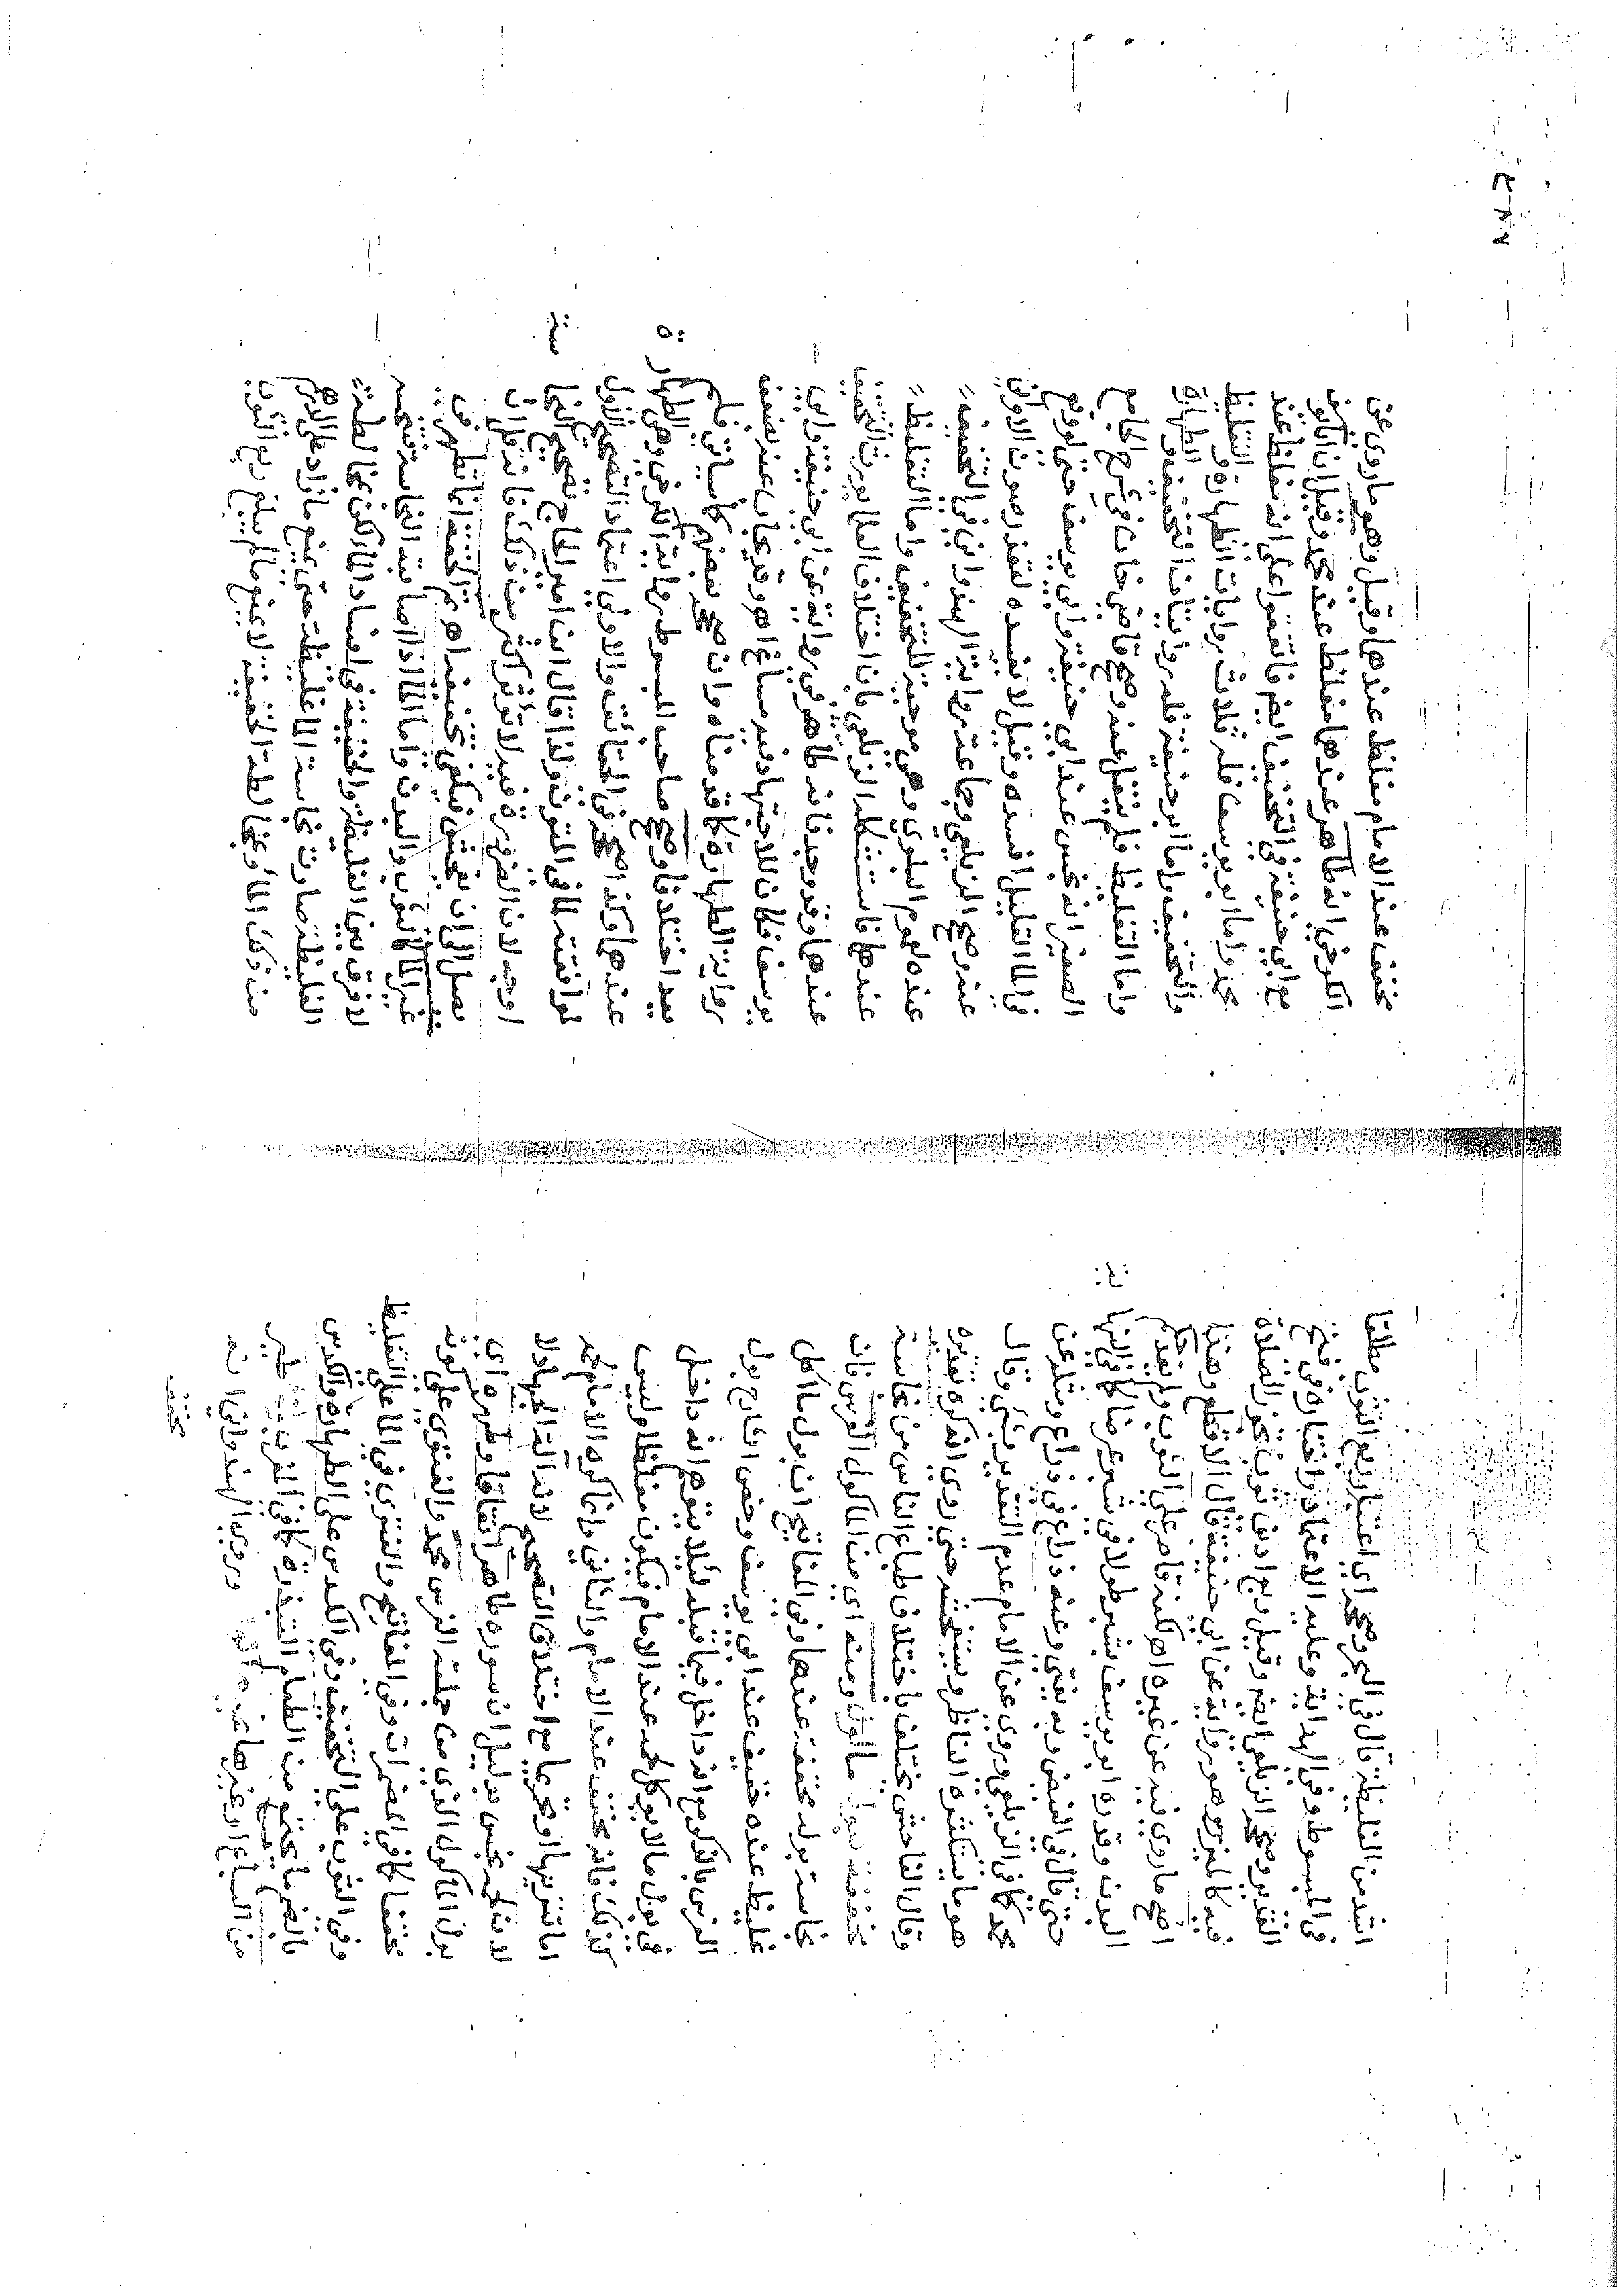 اشد من الغليظة قال في البحر وصححه اي اعتبار ربع الثوب مطلقا
في المبسوط وفي الهداية وعليه الاعتماد واختاره في فتح
القدير وصححه الزيلعي ايضا وقيل ربع ادنى ثوب تجوز الصلاة
فيه كالميزر وهو رواية عن ابي حنيفة قال الاقطع وهذا
اصح ما روي فيه عن غيره اه لكنه قاصر على الثوب ولم يفد حكم
البدن وقدره ابو يوسف بشبر طولا في شبر عرضا كما في النهاية
حتى قال في الفيض وبه يفتى وعنه ذراع في ذراع ومثله عن
محمد كما في الزيلعي وروي عن الامام عدم التقدير بشي وقال
هو ما يستكثره الناظر ويستفحشه حتى روي انه كره تقديره
وقال الفاحش يختلف باختلاف طباع الناس من نجاسة
مخففة كبول ماكول ومنه اي من الماكول الفرس فان
نجاسة بوله مخففة عندهما وفي المفاتيح ان بول ما اكل
غليظ عنده خفيف عند ابي يوسف وخص الشارح بول
الفرس بالذكر مع انه داخل فيما قبله لئلا يتوهم انه داخل
في بول ما لا يوكل لحمه عند الامام فيكون مغلظا وليس
كذلك فانه مخفف عند الامام والثاني وانما كره الامام لحمه
اما تنزيها او تحريما مع اختلاف التصحيح لانه الة الجهاد لا
لان لحمه نجس بدليل ان سوره طاهر اتفاقا وطهره اي
بول الماكول الذي من جملته الفرس محمد والفتوى على كونه
مخففا كما في المضمرات وفي المفاتيح والفتوى في الما على التغليظ
وفي الثوب على التخفيف وفي الكدس على الطهارة والكدس
بالضم ما يجمع من الطعام في البيدر كما في القرب وخر طير
من السباع او غيرها غير ماكول وروي الهندواني انه
مخفف
مخفف عند الامام مغلظ عندهما وقيل وهو ما روي عن
الكرخي انه طاهر عندهما مغلظ عند محمد وقيل ان ابا يوسف
مع ابي حنيفة في التخفيف ايضا فاتفقوا على انه مغلظ عند
محمد واما ابو يوسف فله ثلاث روايات الطهارة والتغليظ
والتخفيف واما ابو حنيفة فله روايتان التخفيف والطهارة
واما التغليظ فلم ينقل عنه وصحح قاضي خان في شرح الجامع
الصغير انه نجس عند ابي حنيفة وابي يوسف حتى لو وقع
في الما القليل افسده وقيل لا يفسده لتعذر صون الاواني
عنه وصحح الزيلعي وجماعة رواية الهندواني في التخفيف
عنده لعموم البلوى وهي موجبة للتخفيف واما التغليظ
عندهما فاستشكله الزيلعي بان اختلاف العلما يورث التخفيف
عندهما وقد وجد فانه طاهر في رواية عن ابي حنيفة وابي
يوسف فكان للاجتهاد فيه مساغ اه وقد يجاب عنه بضعف
رواية الطهارة كما قدمناه وان صححه بعضهم كما سياتي فلم
يعد اختلافا وصحح صاحب المبسوط رواية الكرخي وهي الطهارة
عندهما وكذا صححه في الحقائق والاولى اعتماد التصحيح الاول
لموافقته لما في المتون ولذا قال ابن امير الحاج تصحيح النجاسة
اوجه لان الضرورة فيه لا توثر اكثر من ذلك فانه قل ان
يصل الى ان يفحش فيكفي تخفيفه اه ثم الخفة انما تظهر في
غير الما كالثوب والبدن واما الما اذا اصابته النجاسة فتنجسه
لا فرق بين الغليظة والخفيفة في افساد الما لكن مخالطة
الغليظة صارت نجاسة الما غليظة حتى يمنع ما زاد على الدرهم
من ذلك الما وبمخالطة الخفيفة لا يمنع ما لم يبلغ ربع الثوب